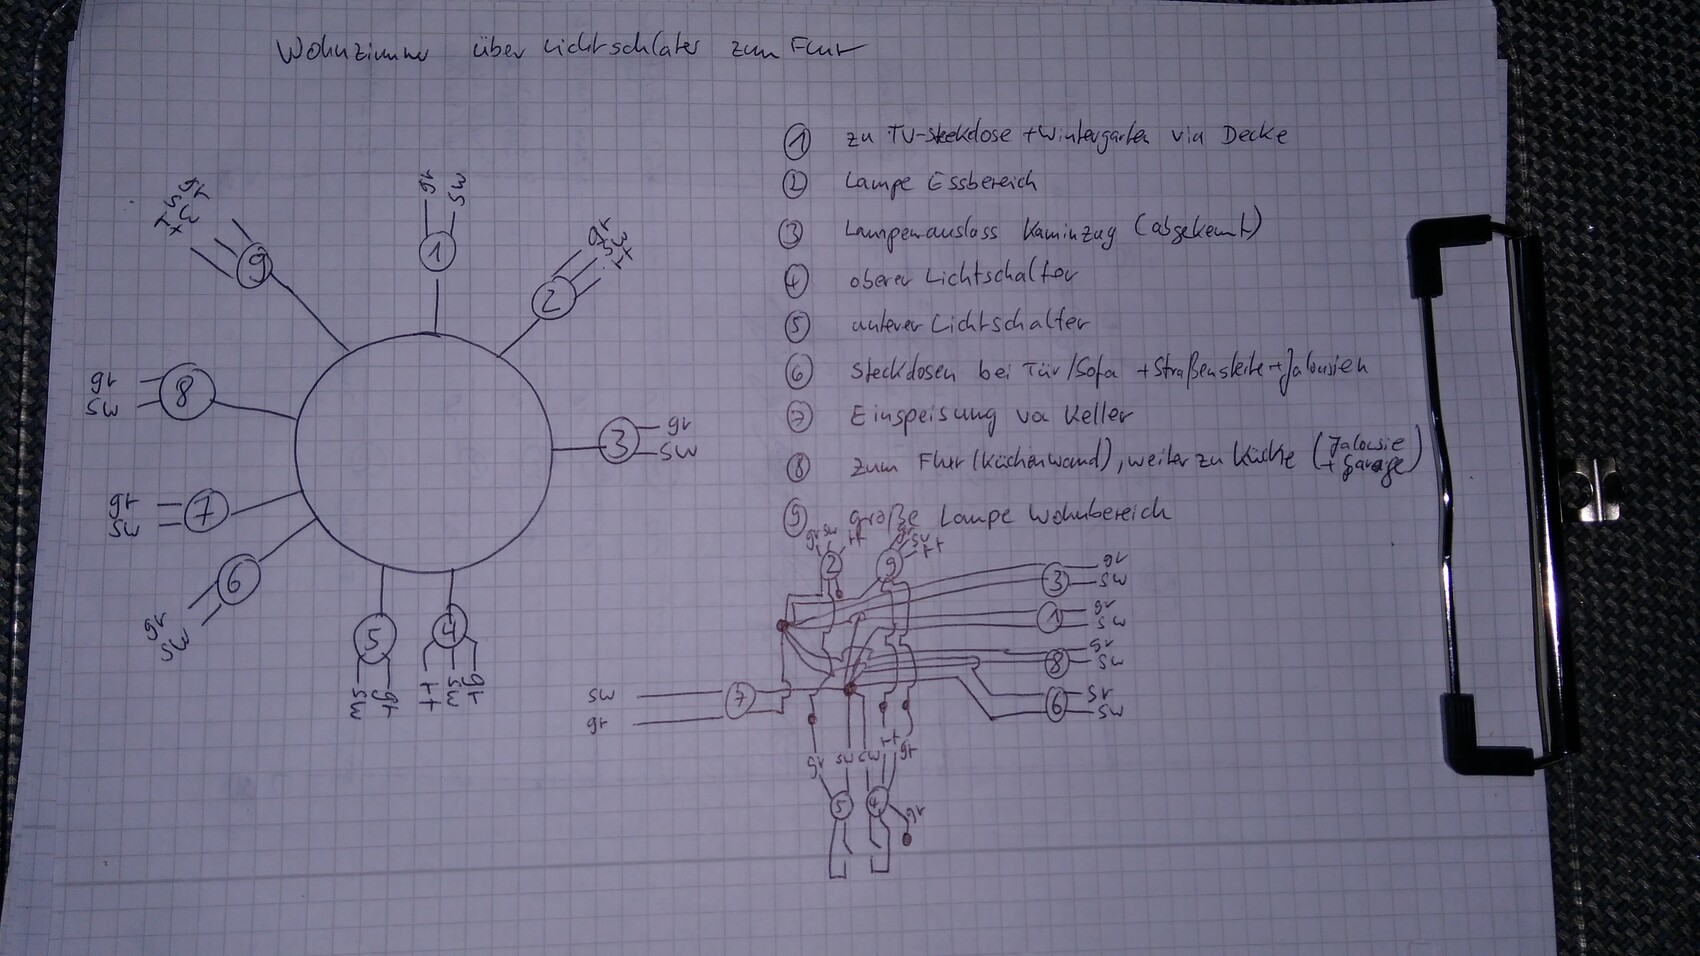 Wohnzimmer über Lichtschlater zum Flur
① zu TV-Steckdose + Wintergarten via Decke
② Lampe Essbereich
③ Lampenauslass Kaminzug (abgekemt)
④ oberer Lichtschalter
⑤ unterer Lichtschalter
⑥ Steckdosen bei Tür/Sofa + Straßenseite + Jalousien
⑦ Einspeisung va Keller
⑧ zum Flur (Küchenwand), weiter zu Küche (Jalousie + Garage)
⑨ große Lampe Wohnbereich
gr sw rt
9
gr sw
1
gr sw rt
2
gr sw
8
3
gr
sw
gr sw
7
6
gr sw
5
sw gr
4
rt sw gr
gr sw rt
2
gr sw rt
9
3 gr
sw
1 gr
sw
8 gr
sw
6 gr
sw
sw
gr
7
gr sw sw rt gr
5 4 gr